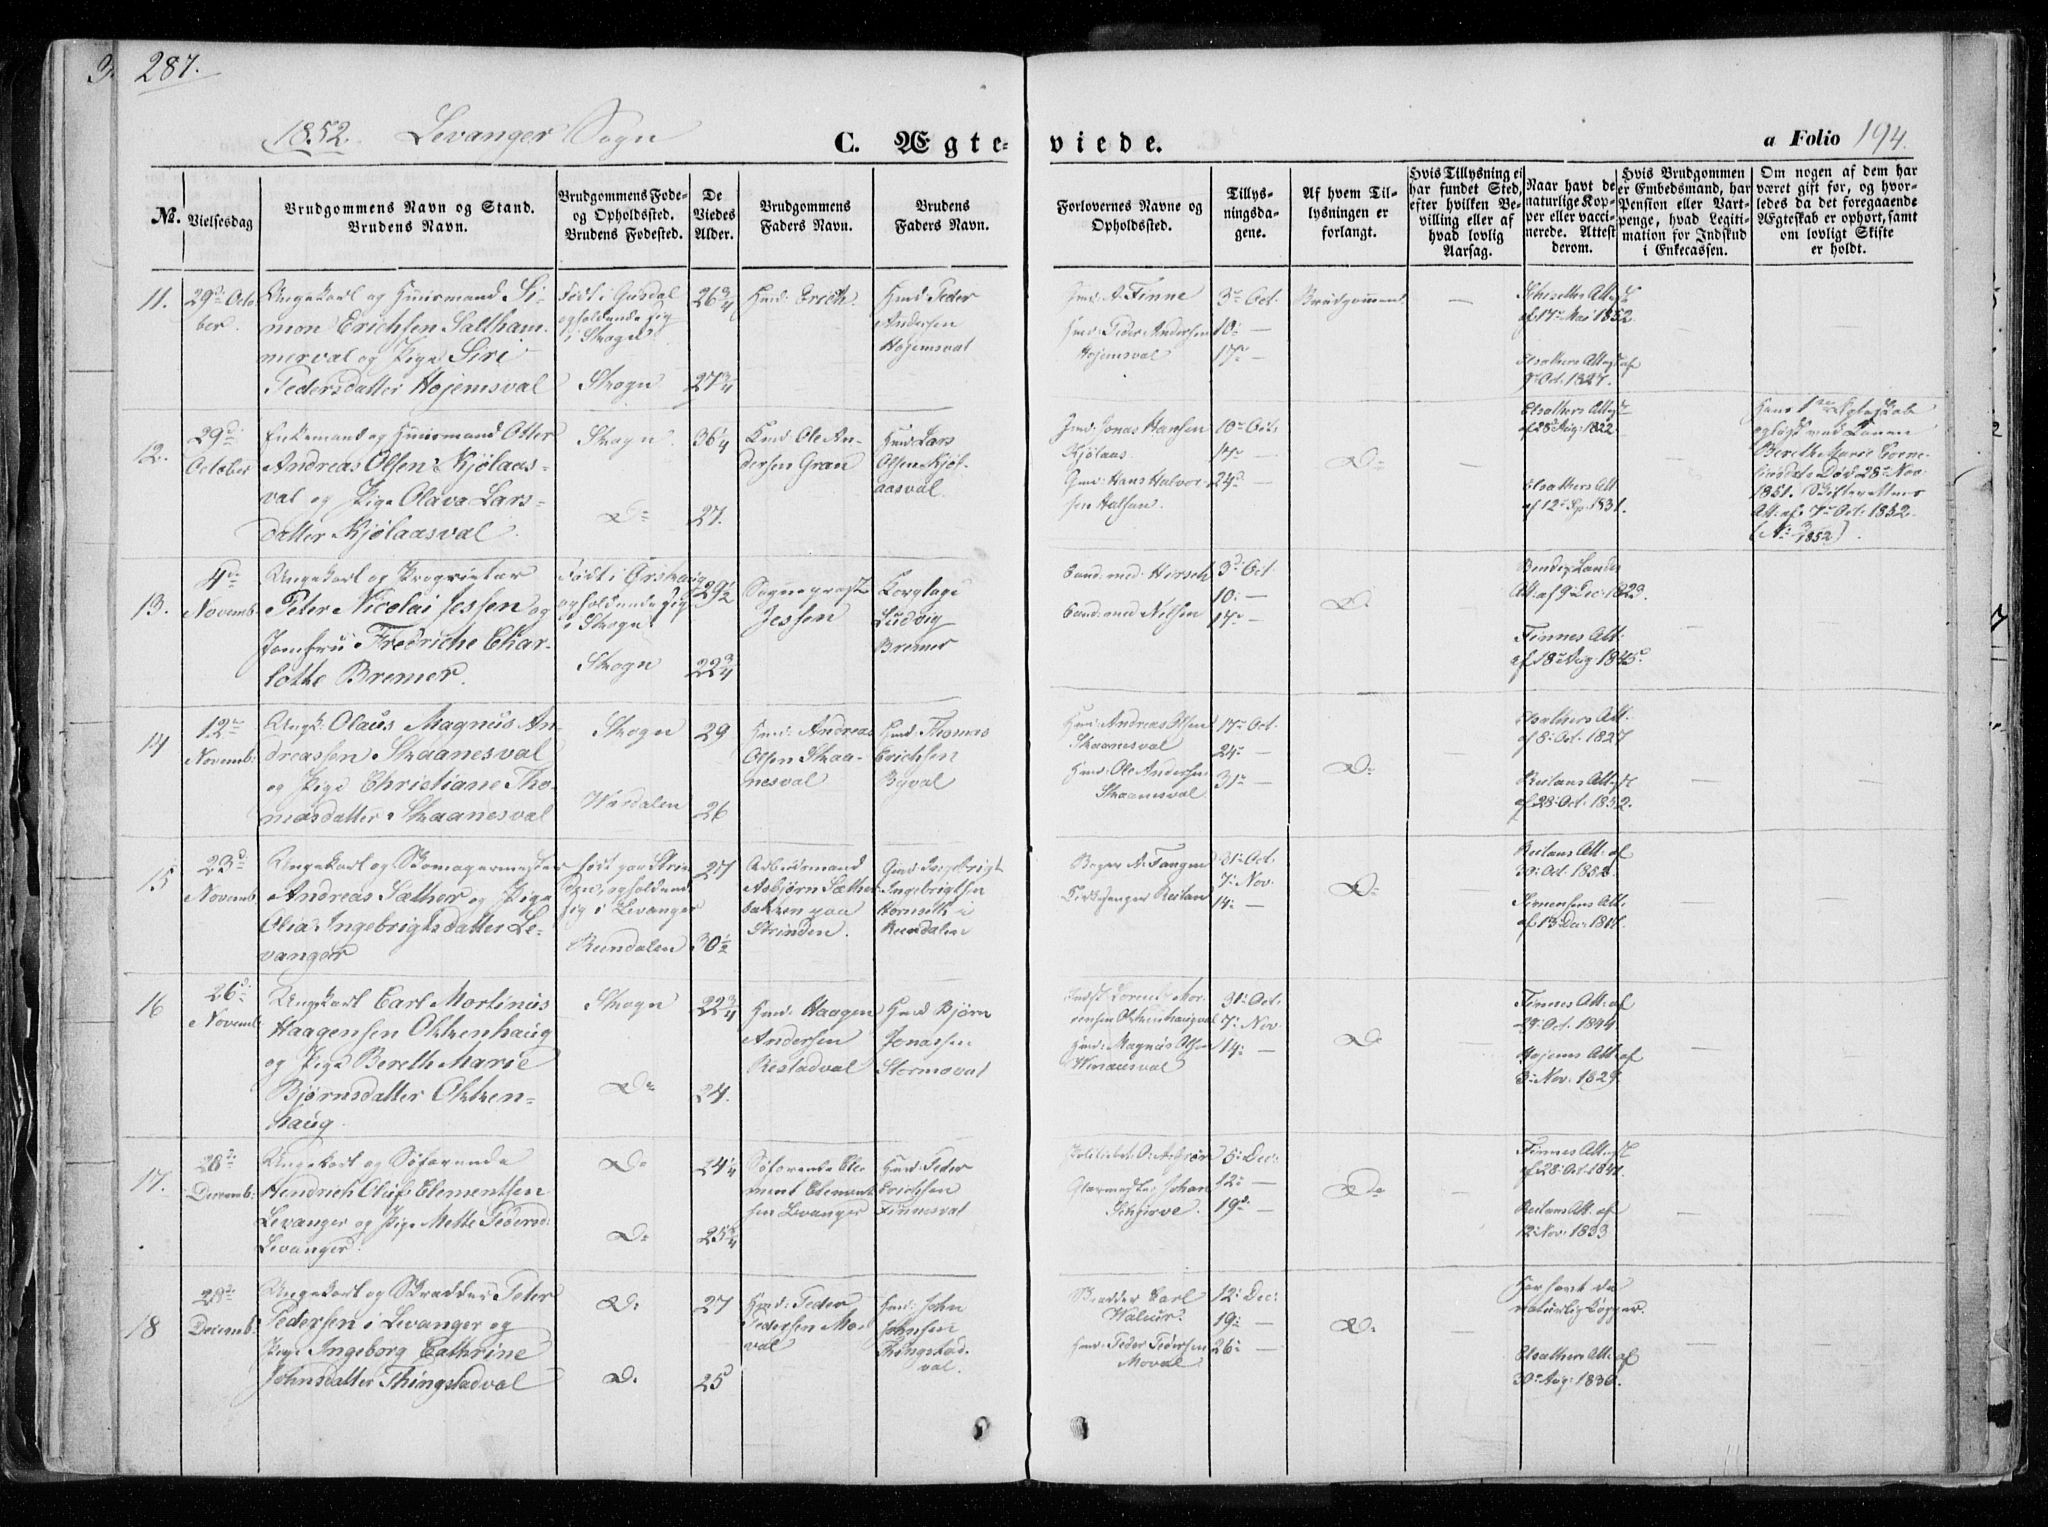 287.
1852. Levanger Sogn
C. Ægte-
viede.
a Folio 194.
No.
Vielsesdag
Brudgommens Navn og Stand.
Brudens Navn.
Brudgommens Føde-
og Opholdssted.
Brudens Fødested.
De
Viedes
Alder.
Brudgommens
Faders Navn.
Brudens
Faders Navn.
Forlovernes Navne og
Opholdssted.
Tillys-
ningsda-
gene.
Af hvem Til-
lysningen er
forlangt.
Hvis Tillysning ei
har fundet Sted,
efter hvilken Be-
villing eller af
hvad lovlig
Aarsag.
Naar havt de
naturlige Kop-
per eller vacci-
nerede. Attest
derom.
Hvis Brudgommen
er Embedsmand, har
Pension eller Vart-
penge, hvad Legiti-
mation for Indskud
i Enkecassen.
Om nogen af dem har
været gift før, og hvor-
ledes da det foregaaende
Ægteskab er ophørt, samt
om lovligt Skifte
er holdt.
11.
29de Octo
ber.
Ungekarl og Huusmand Si-
mon Erichsen Saltham-
merval og Pige Siri
Pedersdatter Hojemsval
Født i
opholdende sig
i Skogn
Skogn
26 3/4
27 3/4
Hmd: Erich
Hmd: Peder
Andersen
Hojemsval
A. Finne
Hmd: Peder Andersen
Hojemsval
3de Oct
10 —
17de —
Brudgommen
—
Att
af 17de Mai 1852
Elsathers Attest af
Oct. 1827.
12.
29de
October
Enkemand og Huusmand Otter
Andreas Olsen Kjølaas-
val og Pige Olava Lars-
datter Kjølaasval
Skogn
Do
36 1/4
27.
Hmd: Ole An-
dersen Gran
Hmd: Lars
Olsen Kjøl-
aasval.
Gmd: Jonas Hansen
Kjølaas.
Gmd: Hans Halvor-
sen Halsan
10de Oct:
17de —
24de —
Do
—
Elsathers Attest
af 28 Aug: 1822
Elsathers Att
af 12te Sp. 1831.
Hans 1ste Ægteskab
opløst ved Konen
Bereth Marie Corne-
liusdatr Død 28de Nov
1851. Skifterettens
Att. af 7de Oct: 1852.
13.
4de
Novemb
Ungekarl og Proprietær
Peter Nicolai Jessen og
Jomfru Fredriche Char-
lotte Bremer.
Født i Ørskoug
opholdende sig
i Skogn
Skogn
29 1/2
22 3/4
Sogneprest
Jessen
Ludvig
Bremer
Cand: med: Hirsch
Cand: med Nilsen
3de Oct
10 —
17de —
Do
Att. af 9 Dec: 1823.
Finnes Att.
af 18de Aug 1845.
14
12te
Novemb:
Ungk: Olaus Magnus An-
dreassen Skaanesval
og Pige Christiane Tho-
masdatter Skaanesval
Skogn
Værdalen
29
26
Hmd: Andreas
Olsen Skaa-
nesval
Hmd: Thomas
Erichsen
Byval
Hmd: Andreas Olsen
Skaanesval
Hmd: Ole Andersen
Skaanesval
17de Oct
24de —
31te —
Do
Elsathers Att.
af 8de Oct. 1827
Reitans Attest
af 28de Oct. 1852.
15
23de
Novemb
Ungekarl og Skomagermester
Andreas Sæther og Pige
Olia Ingebrigtsdatter Le-
vanger
født paa Strin
den, opholdend
sig i Levanger
Rundalen
27
30 1/2
Arbeidsmand
Asbjørn Sæther-
bakken paa
Strinden.
Ingebrigt
Ingebrigtsen
Hornseth i
Rundalen
Bager N. Fangen
Kirkesanger Reitan
31te Oct.
7de Nov.
14de —
Do
Reitans Att: af
30 Oct. 1852.
Simensens Att.
af 13 Dec: 1817.
16
26de
Novemb:
Ungekarl Carl Mortinus
Haagensen Okkenhaug
og Pige Bereth Marie
Bjørnsdatter Okken-
haug.
Skogn
Do
22 3/4
24.
Hmd: Haagen
Andersen
Restadval
Hmd Bjørn
Jonassen
Stormoval
Okkenhaugval
Hmd: Magnus Olsen
31te Oct.
7de Nov.
14de —
Do
Finnes Att: af
29 Oct. 1844.
Hojems Att: af
8 Nov. 1829.
17.
28de
Decemb:
Ungekarl og Søfarende
Hendrich Oluf Clementsen
Levanger og Pige Mette Pedersd:
Levanger.
Do
Do
24 1/4
25 3/4
Søfarende Cle-
ment Clement
sen Levanger
Hmd: Peder
Erichsen
Finnesval
Glarmester Johan
5de Dec:
12te —
19de —
Do
—
Finnes Attest
af 28de Oct. 1841.
Reitans Att. af
12 Nov. 1833
18
28de
Decemb:
Ungekarl og Skrædder Peter
Pedersen i Levanger og
Pige Ingeborg Cathrine
Johnsdatter Thingstadval
Do
Do
27
25
Hmd: Peder
Pedersen Mo-
val
Hmd: John
Johnsen
Thingstad-
val.
Skrædder Carl
Hmd: Peder Pedersen
Moval
12te Dec:
19de —
26de —
Do
Har havt de
naturlige Kopper.
Elsathers Att: af
30te Aug: 1830.